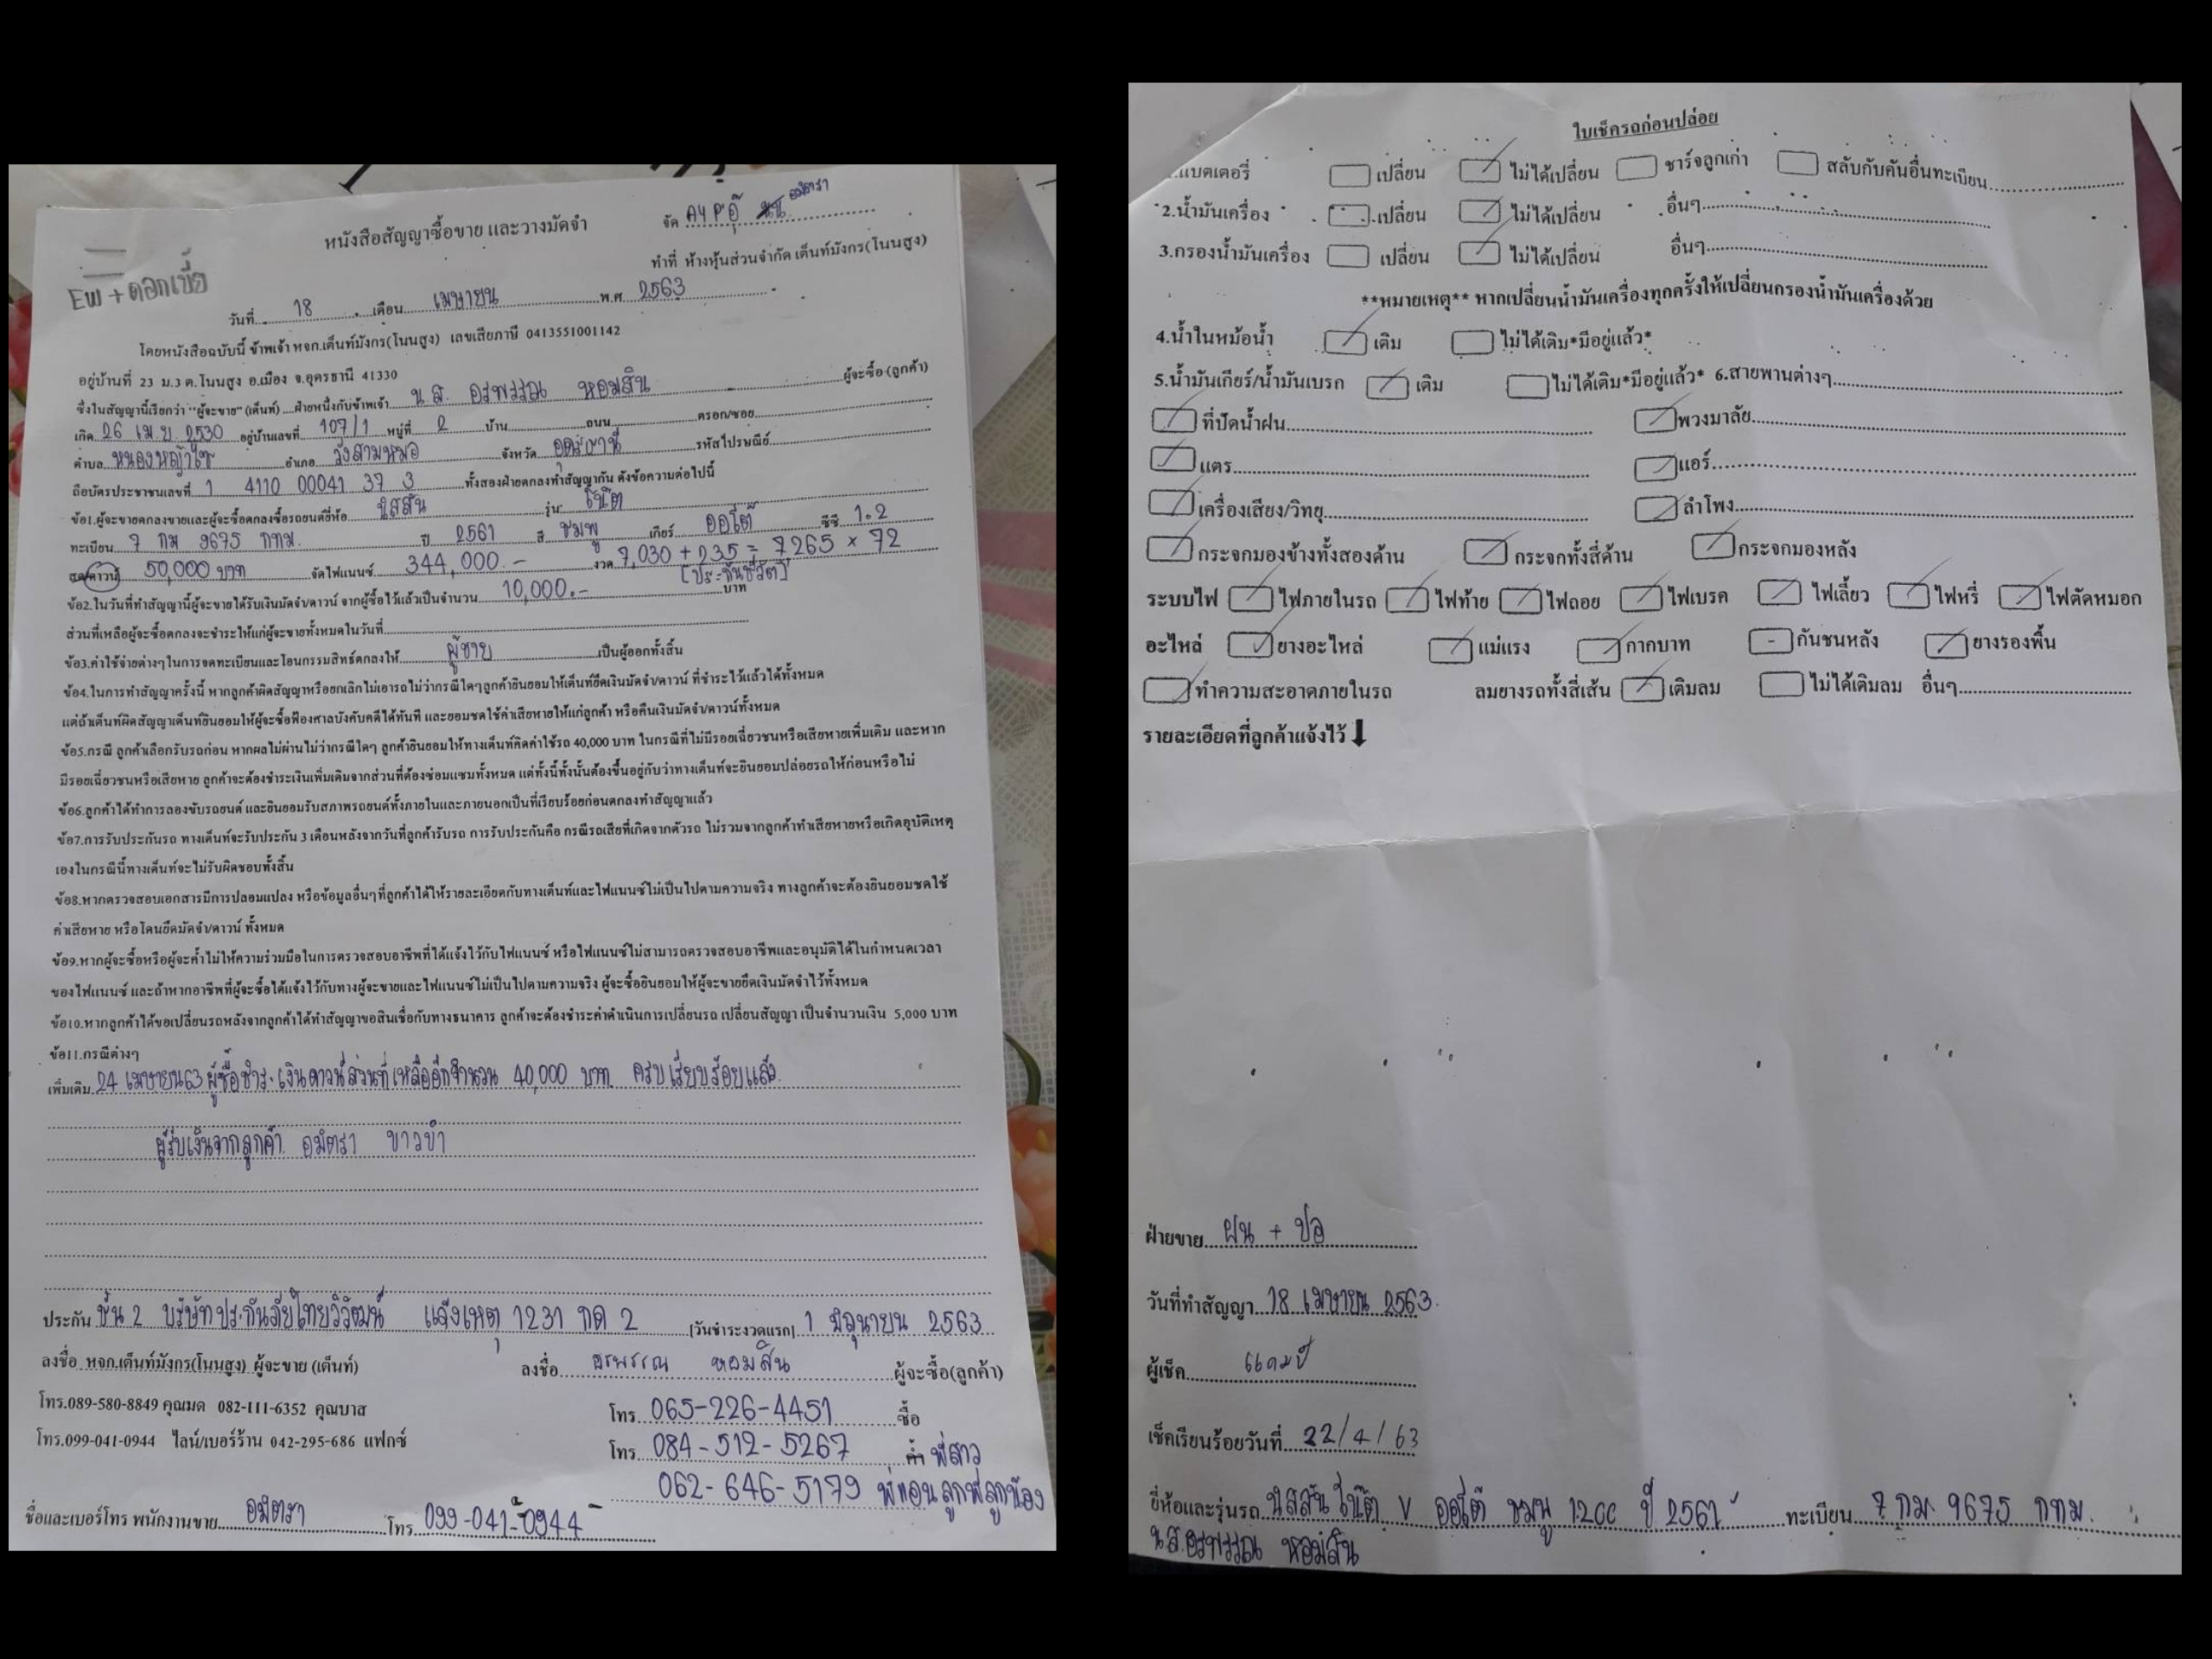 หนังสือสัญญาซื้อขาย และวางมัดจำ
จัด AY P'อุ๊ อมิตรา
EW + ดอกเบี้ย
ทำที่ ห้างหุ้นส่วนจำกัด เต็นท์มังกร(โนนสูง)
วันที่ 18 เดือน เมษายน พ.ศ 2563
โดยหนังสือฉบับนี้ ข้าพเจ้า หจก.เต็นท์มังกร(โนนสูง) เลขเสียภาษี 0413551001142
อยู่บ้านที่ 23 ม.3 ต.โนนสูง อ.เมือง จ.อุดรธานี 41330
ซึ่งในสัญญานี้เรียกว่า "ผู้จะขาย" (เต็นท์) ฝ่ายหนึ่งกับข้าพเจ้า น.ส. อรพรรณ หอมสิน ผู้จะซื้อ (ลูกค้า)
เกิด 26 เม.ย 2530 อยู่บ้านเลขที่ 107/1 หมู่ที่ 2 บ้าน ถนน ตรอก/ซอย
ตำบล หนองหญ้าไซ อำเภอ วังสามหมอ จังหวัด อุดรธานี รหัสไปรษณีย์
ถือบัตรประชาชนเลขที่ 1 4110 00041 37 3 ทั้งสองฝ่ายตกลงทำสัญญากัน ดังข้อความต่อไปนี้
ข้อ1.ผู้จะขายตกลงขายและผู้จะซื้อตกลงซื้อรถยนต์ยี่ห้อ นิสสัน รุ่น โน๊ต
ทะเบียน 7 กม 9675 กทม. ปี 2561 สี ชมพู เกียร์ ออโต้ ซีซี 1.2
สด/ดาวน์ 50,000 บาท จัดไฟแนนซ์ 344,000.- งวด 7,030 + 235 = 7265 × 72
[ประกันชีวิต]
ข้อ2.ในวันที่ทำสัญญานี้ผู้จะขายได้รับเงินมัดจำ/ดาวน์ จากผู้ซื้อไว้แล้วเป็นจำนวน 10,000.- บาท
ส่วนที่เหลือผู้จะซื้อตกลงจะชำระให้แก่ผู้จะขายทั้งหมดในวันที่
ข้อ3.ค่าใช้จ่ายต่างๆในการจดทะเบียนและโอนกรรมสิทธ์ตกลงให้ ผู้ขาย เป็นผู้ออกทั้งสิ้น
ข้อ4.ในการทำสัญญาครั้งนี้ หากลูกค้าผิดสัญญาหรือยกเลิกไม่เอารถไม่ว่ากรณีใดๆลูกค้ายินยอมให้เต็นท์ยึดเงินมัดจำ/ดาวน์ ที่ชำระไว้แล้วได้ทั้งหมด
แต่ถ้าเต็นท์ผิดสัญญาเต็นท์ยินยอมให้ผู้จะซื้อฟ้องศาลบังคับคดีได้ทันที และยอมชดใช้ค่าเสียหายให้แก่ลูกค้า หรือคืนเงินมัดจำ/ดาวน์ทั้งหมด
ข้อ5.กรณี ลูกค้าเลือกรับรถก่อน หากผลไม่ผ่านไม่ว่ากรณีใดๆ ลูกค้ายินยอมให้ทางเต็นท์คิดค่าใช้รถ 40,000 บาท ในกรณีที่ไม่มีรอยเฉี่ยวชนหรือเสียหายเพิ่มเติม และหาก
มีรอยเฉี่ยวชนหรือเสียหาย ลูกค้าจะต้องชำระเงินเพิ่มเติมจากส่วนที่ต้องซ่อมแซมทั้งหมด แต่ทั้งนี้ทั้งนั้นต้องขึ้นอยู่กับว่าทางเต็นท์จะยินยอมปล่อยรถให้ก่อนหรือไม่
ข้อ6.ลูกค้าได้ทำการลองขับรถยนต์ และยินยอมรับสภาพรถยนต์ทั้งภายในและภายนอกเป็นที่เรียบร้อยก่อนตกลงทำสัญญาแล้ว
ข้อ7.การรับประกันรถ ทางเต็นท์จะรับประกัน 3 เดือนหลังจากวันที่ลูกค้ารับรถ การรับประกันคือ กรณีรถเสียที่เกิดจากตัวรถ ไม่รวมจากลูกค้าทำเสียหายหรือเกิดอุบัติเหตุ
เองในกรณีนี้ทางเต็นท์จะไม่รับผิดชอบทั้งสิ้น
ข้อ8.หากตรวจสอบเอกสารมีการปลอมแปลง หรือข้อมูลอื่นๆที่ลูกค้าได้ให้รายละเอียดกับทางเต็นท์และไฟแนนซ์ไม่เป็นไปตามความจริง ทางลูกค้าจะต้องยินยอมชดใช้
ค่าเสียหาย หรือโดนยึดมัดจำ/ดาวน์ ทั้งหมด
ข้อ9.หากผู้จะซื้อหรือผู้จะค้ำไม่ให้ความร่วมมือในการตรวจสอบอาชีพที่ได้แจ้งไว้กับไฟแนนซ์ หรือไฟแนนซ์ไม่สามารถตรวจสอบอาชีพและอนุมัติได้ในกำหนดเวลา
ของไฟแนนซ์ และถ้าหากอาชีพที่ผู้จะซื้อได้แจ้งไว้กับทางผู้จะขายและไฟแนนซ์ไม่เป็นไปตามความจริง ผู้จะซื้อยินยอมให้ผู้จะขายยึดเงินมัดจำไว้ทั้งหมด
ข้อ10.หากลูกค้าได้ขอเปลี่ยนรถหลังจากลูกค้าได้ทำสัญญาขอสินเชื่อกับทางธนาคาร ลูกค้าจะต้องชำระค่าดำเนินการเปลี่ยนรถ เปลี่ยนสัญญา เป็นจำนวนเงิน 5,000 บาท
ข้อ11.กรณีต่างๆ
เพิ่มเติม 24 เมษายน63 ผู้ซื้อชำระเงินดาวน์ส่วนที่เหลืออีกจำนวน 40,000 บาท ครบเรียบร้อยแล้ว
ผู้รับเงินจากลูกค้า อมิตรา ขาวขำ
ประกัน ชั้น 2 บริษัทประกันภัยไทยวิวัฒน์ แจ้งเหตุ 1231 กด 2 [วันชำระงวดแรก] 1 มิถุนายน 2563
ลงชื่อ หจก.เต็นท์มังกร(โนนสูง) ผู้จะขาย (เต็นท์) ลงชื่อ อรพรรณ หอมสิน ผู้จะซื้อ(ลูกค้า)
โทร.089-580-8849 คุณมด 082-111-6352 คุณบาส โทร 065-226-4451 ซื้อ
โทร.099-041-0944 ไลน์/เบอร์ร้าน 042-295-686 แฟกซ์ โทร 084-512-5267 ค้ำ พี่สาว
062-646-5179 พี่แอน ลูกพี่ลูกน้อง
ชื่อและเบอร์โทร พนักงานขาย อมิตรา โทร 099-041-0944
ใบเช็ครถก่อนปล่อย
.แบตเตอรี่ เปลี่ยน ไม่ได้เปลี่ยน ชาร์จลูกเก่า สลับกับคันอื่นทะเบียน
2.น้ำมันเครื่อง เปลี่ยน ไม่ได้เปลี่ยน อื่นๆ
3.กรองน้ำมันเครื่อง เปลี่ยน ไม่ได้เปลี่ยน อื่นๆ
**หมายเหตุ** หากเปลี่ยนน้ำมันเครื่องทุกครั้งให้เปลี่ยนกรองน้ำมันเครื่องด้วย
4.น้ำในหม้อน้ำ เติม ไม่ได้เติม*มีอยู่แล้ว*
5.น้ำมันเกียร์/น้ำมันเบรก เติม ไม่ได้เติม*มีอยู่แล้ว* 6.สายพานต่างๆ
ที่ปัดน้ำฝน พวงมาลัย
แตร แอร์
เครื่องเสียง/วิทยุ ลำโพง
กระจกมองข้างทั้งสองด้าน กระจกทั้งสี่ด้าน กระจกมองหลัง
ระบบไฟ ไฟภายในรถ ไฟท้าย ไฟถอย ไฟเบรค ไฟเลี้ยว ไฟหรี่ ไฟตัดหมอก
อะไหล่ ยางอะไหล่ แม่แรง กากบาท กันชนหลัง ยางรองพื้น
ทำความสะอาดภายในรถ ลมยางรถทั้งสี่เส้น เติมลม ไม่ได้เติมลม อื่นๆ
รายละเอียดที่ลูกค้าแจ้งไว้
ฝ่ายขาย ฝน + ปอ
วันที่ทำสัญญา 18 เมษายน 2563
ผู้เช็ค แคมป์
เช็คเรียบร้อยวันที่ 22/4/63
ยี่ห้อและรุ่นรถ นิสสัน โน๊ต V ออโต้ ชมพู 1200 ปี 2561 ทะเบียน 7 กม 9675 กทม.
น.ส.อรพรรณ หอมสิน